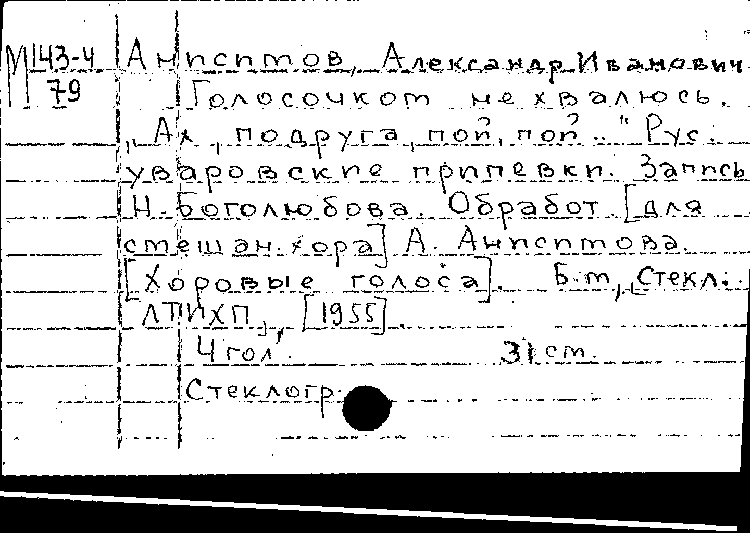 М 143-4 Анисимов, Александр Иванович
79 Голосочком не хвалюсь.
„Ах, подруга, пой, пой.." Рус.
уваровские припевки. Запись
Н. Боголюбова. Обработ. [для
смешан. хора] А. Анисимова.
[Хоровые голоса]. Б.м., [Стекл.
ЛТИХП], [1955].
4 гол. 31 см.
Стеклогр.